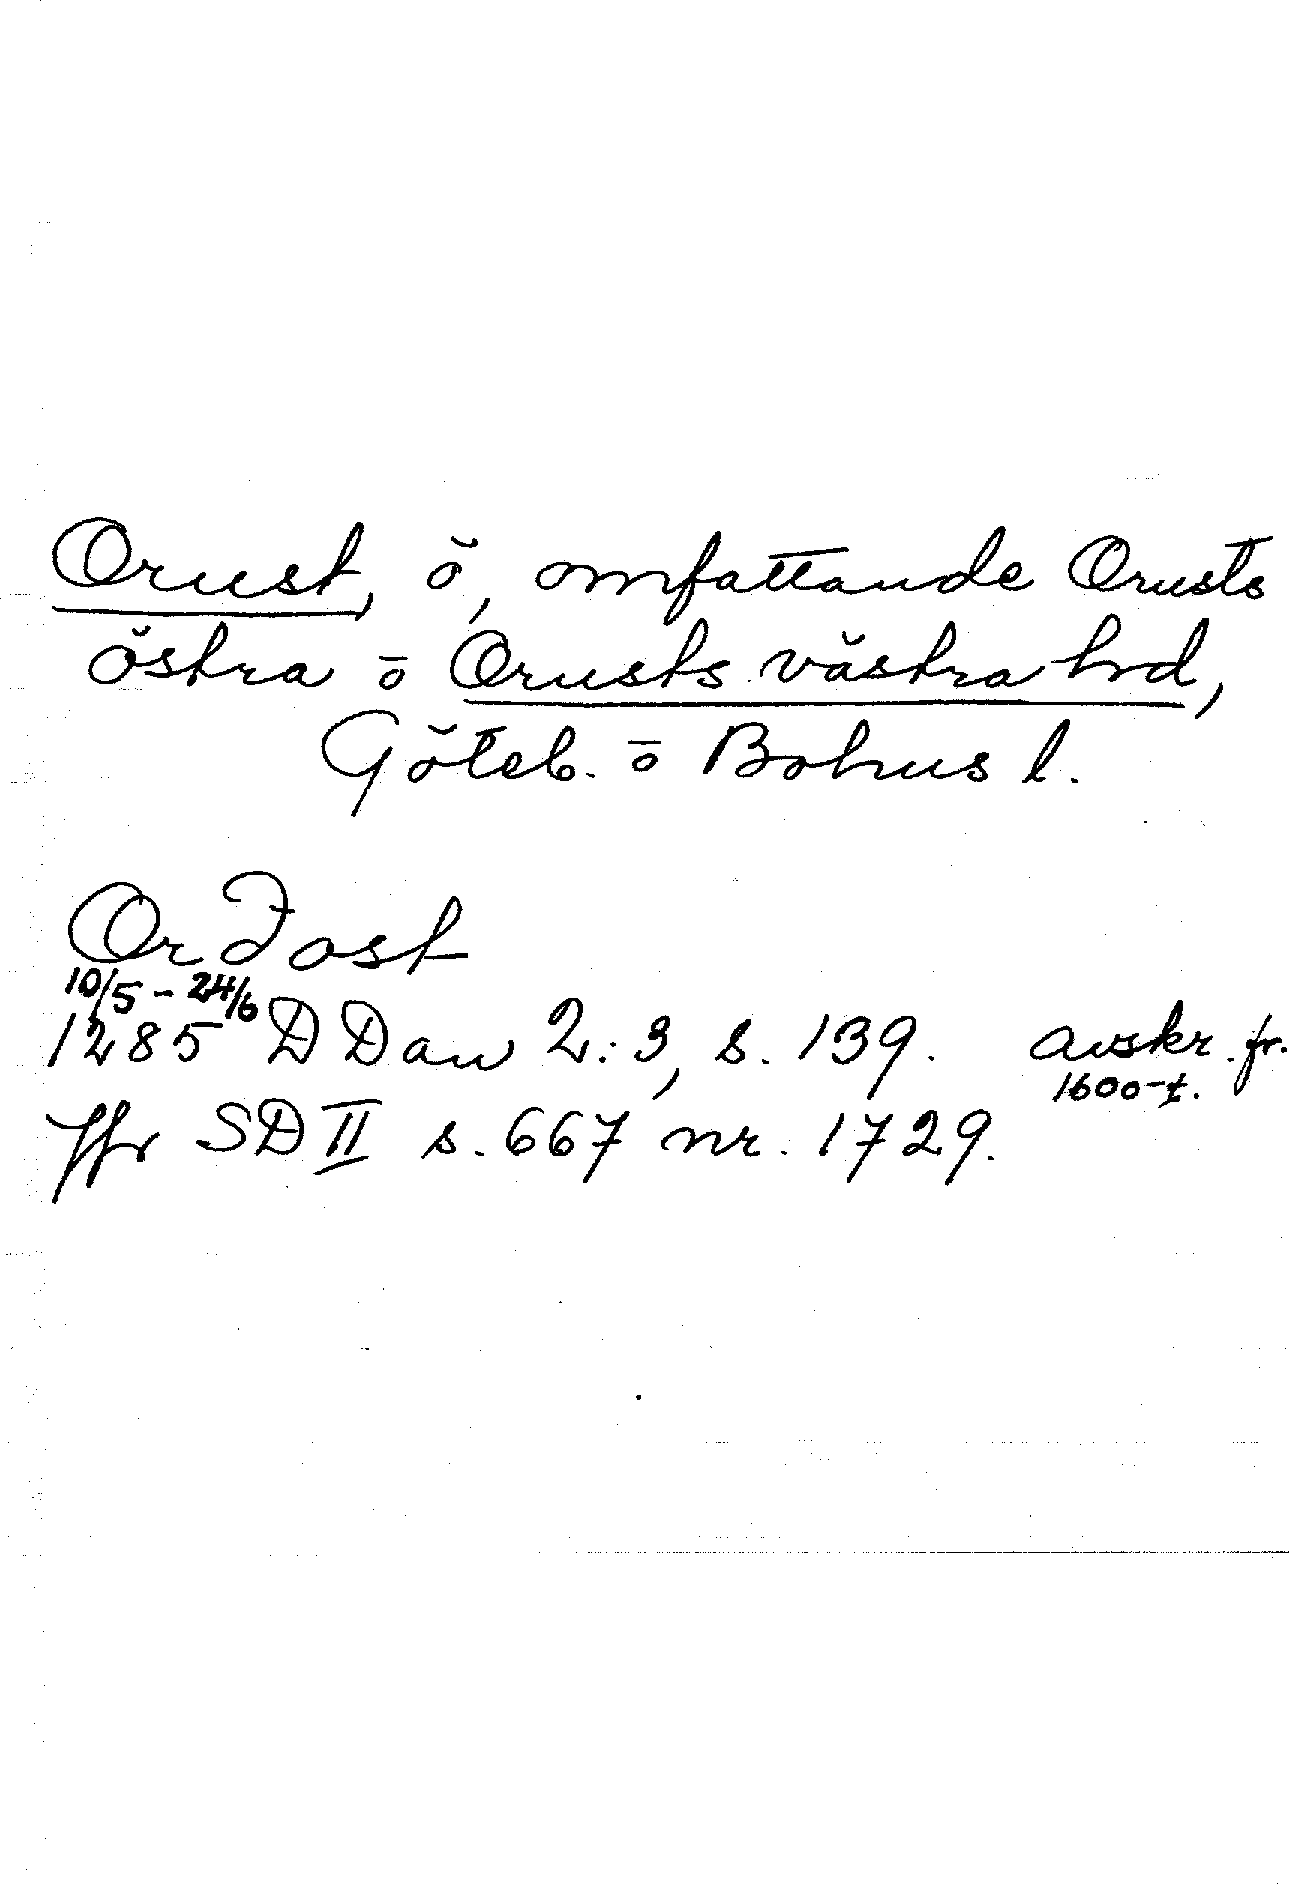 Orust, ö, omfattande Orusts
östra o Orusts västra hrd,
Göteb. o Bohus l.
Or Fost
10/5 - 24/6
1285 DDan 2:3, s. 139. avskr. fr.
1600-t.
Jfr SD II s. 667 nr. 1729.